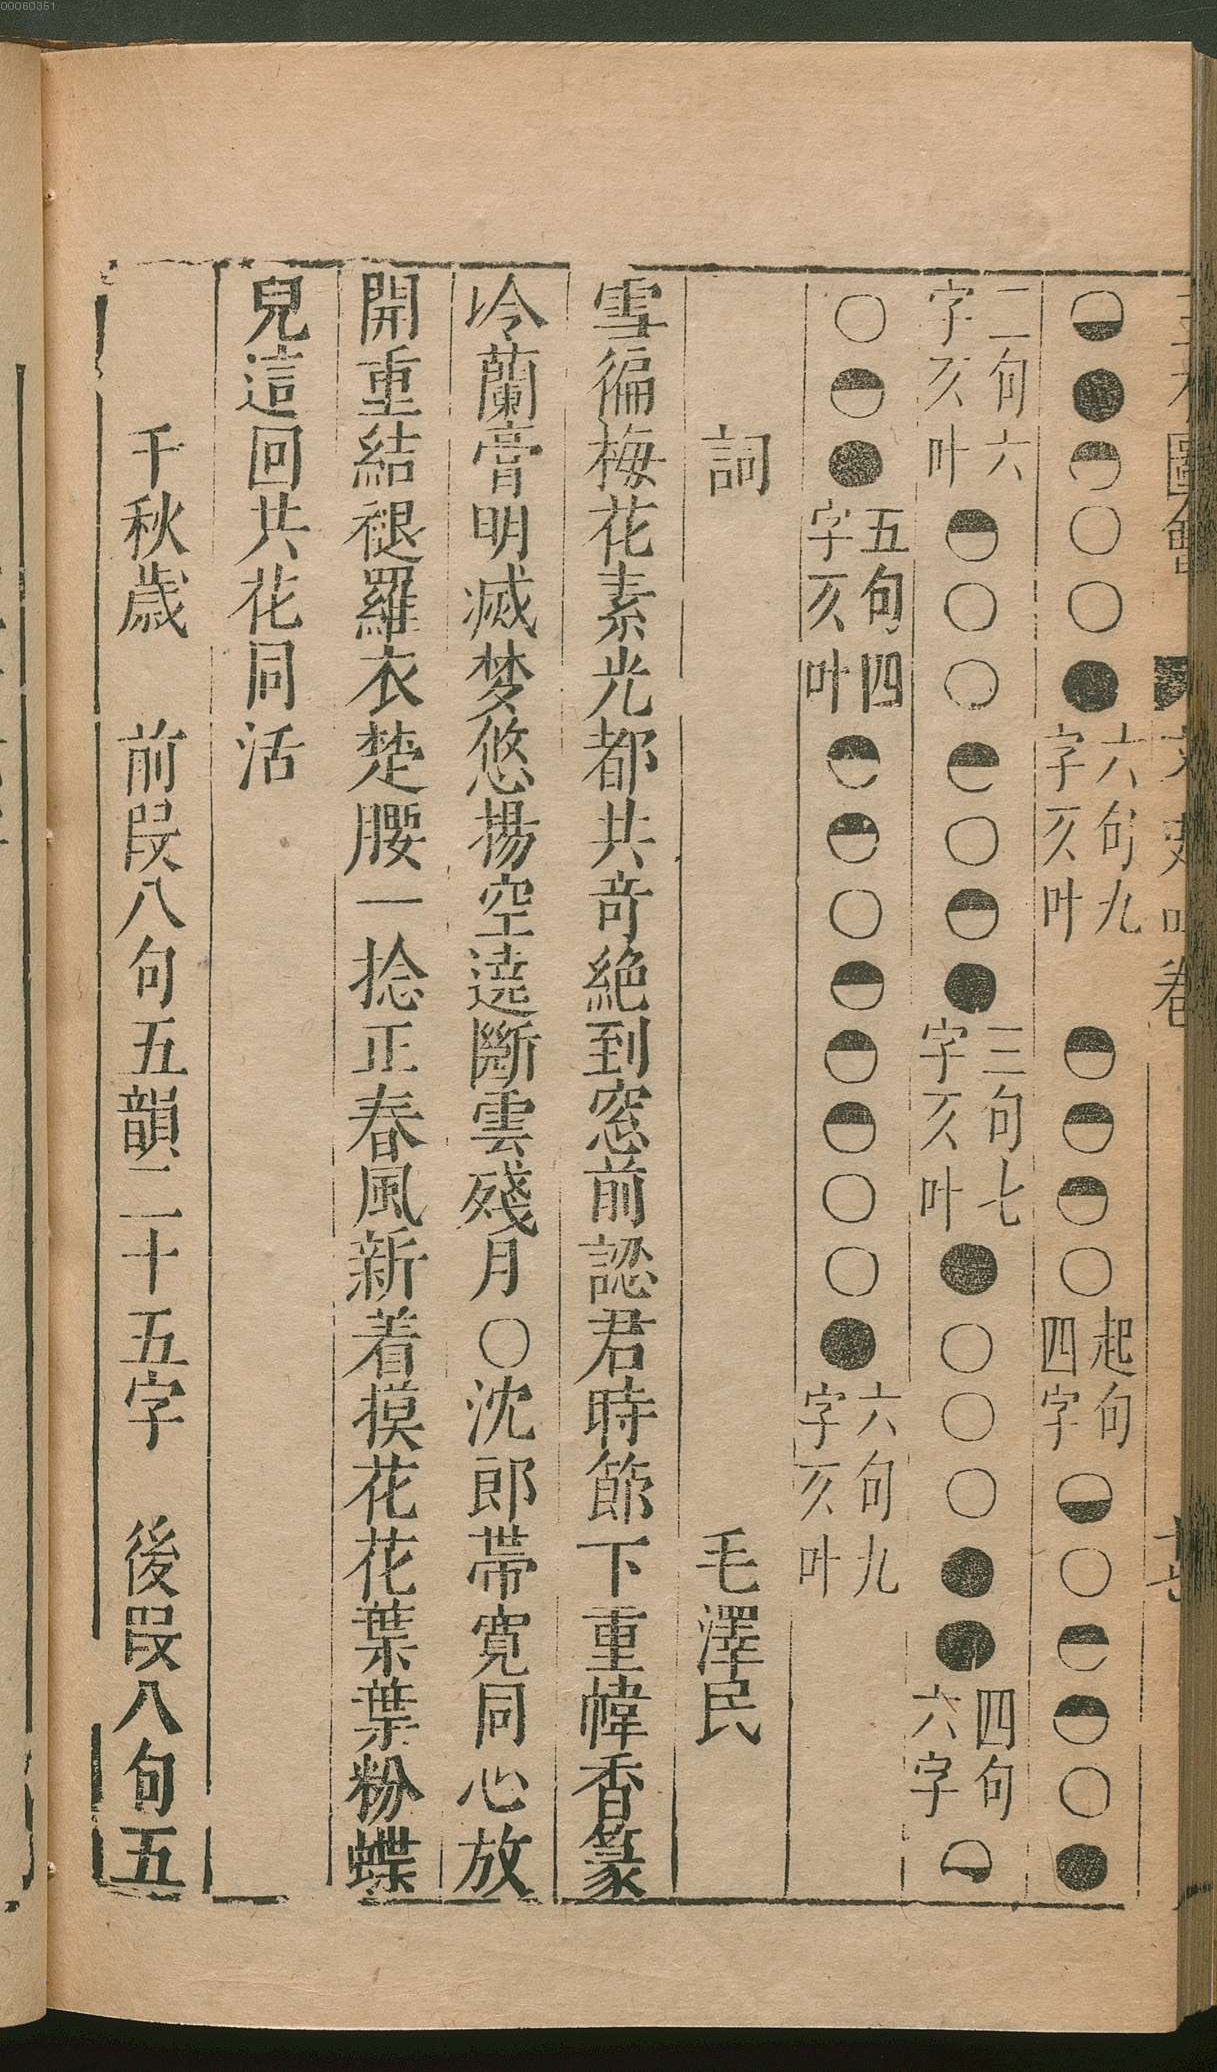 00060351
◒●◓○○●六句九字仄叶◓◓◓○起句四字◒○◓◓○●
二句六字仄叶◓○○◓○◓●三句七字仄叶●○○○●●四句六字◒
○◓●五句四字仄叶◓◓○◓◓◓○○●六句九字仄叶
詞 毛澤民
雪徧梅花素光都共奇絶到窓前認君時節下重幃香篆
冷蘭膏明滅梦悠揚空遶斷雲殘月○沈郎帶寬同心放
開重結褪羅衣楚腰一捻正春風新着摸花花葉葉粉蝶
兒這回共花同活
千秋歲 前段八句五韻二十五字 後段八句五